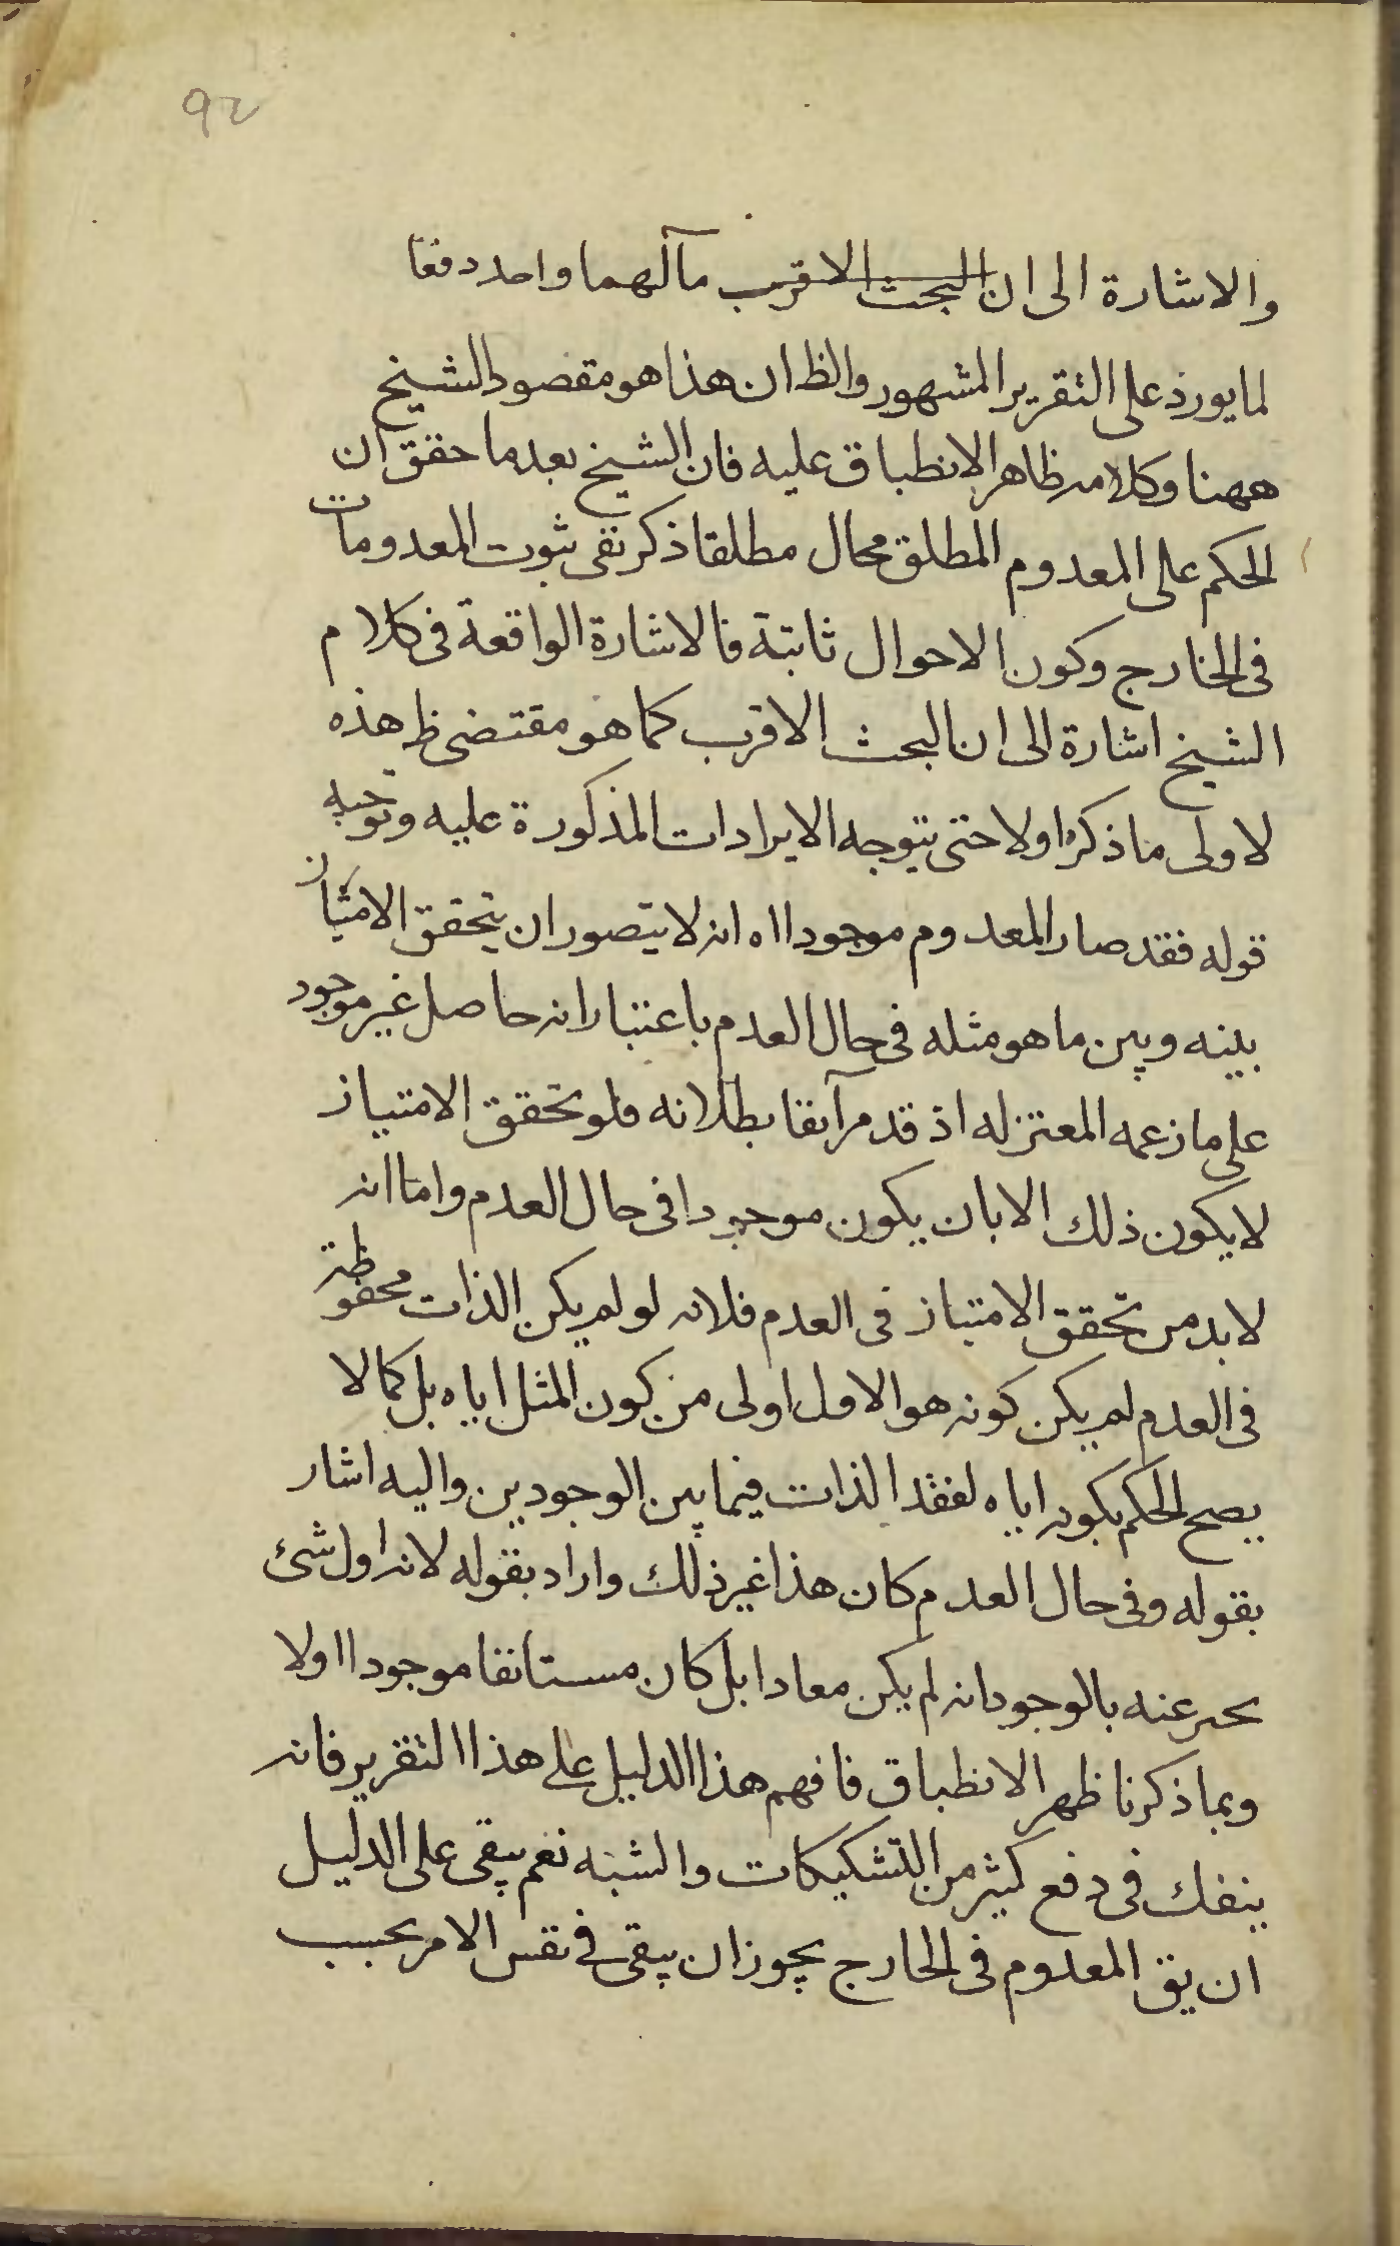 92
والاشارة الى ان البحث الاقرب مآلهما واحد دفعا
لما يورد على التقرير المشهور والظ ان هذا هو مقصود الشيخ
ههنا وكلامه ظاهر الانطباق عليه فان الشيخ بعد ما حقق ان
الحكم على المعدوم المطلق محال مطلقا ذكر نفى ثبوت المعدومات
فى الخارج وكون الاحوال ثابتة فالاشارة الواقعة فى كلام
الشيخ اشارة الى ان البحث الاقرب كما هو مقتضى ظ هذه
لاولى ما ذكره اولا حتى يتوجه الايرادات المذكورة عليه وتوجيه
قوله فقد صار المعدوم موجودا اه انه لا يتصور ان يتحقق الامتياز
بينه وبين ما هو مثله فى حال العدم باعتبار انه حاصل غير موجود
على ما زعمه المعتزله اذ قد مر آنفا بطلانه فلو تحقق الامتياز
لا يكون ذلك الا بان يكون موجودا فى حال العدم واما انه
لا بد من تحقق الامتياز فى العدم فلانه لو لم يكن الذات محفوظة
فى العدم لم يكن كونه هو الاول اولى من كون المثل اياه بل كما لا
يصح الحكم بكونه اياه لفقد الذات فيما بين الوجودين واليه اشار
بقوله وفى حال العدم كان هذا غير ذلك واراد بقوله لانه اول شئ
يخبر عنه بالوجود انه لم يكن معادا بل كان مستانفا موجودا اولا
وبما ذكرنا ظهر الانطباق فافهم هذا الدليل على هذا التقرير فانه
ينفك فى دفع كثير من التشكيكات والشبه نعم يبقى على الدليل
ان يق المعدوم فى الخارج يجوز ان يبقى فى نفس الامر بحسب